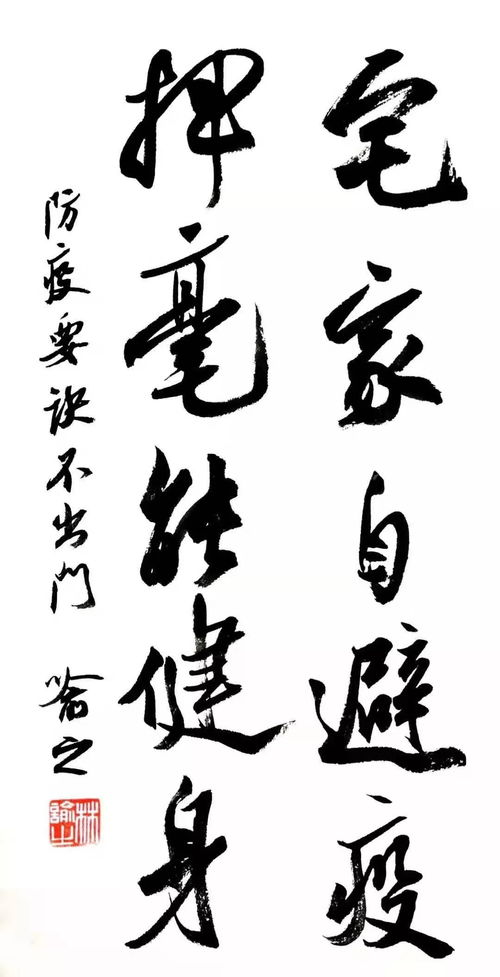 宅家自避疫
挥毫能健身
防疫要诀不出门 喻之
林諭之